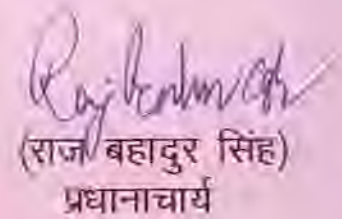 (राज बहादुर सिंह)
प्रधानाचार्य